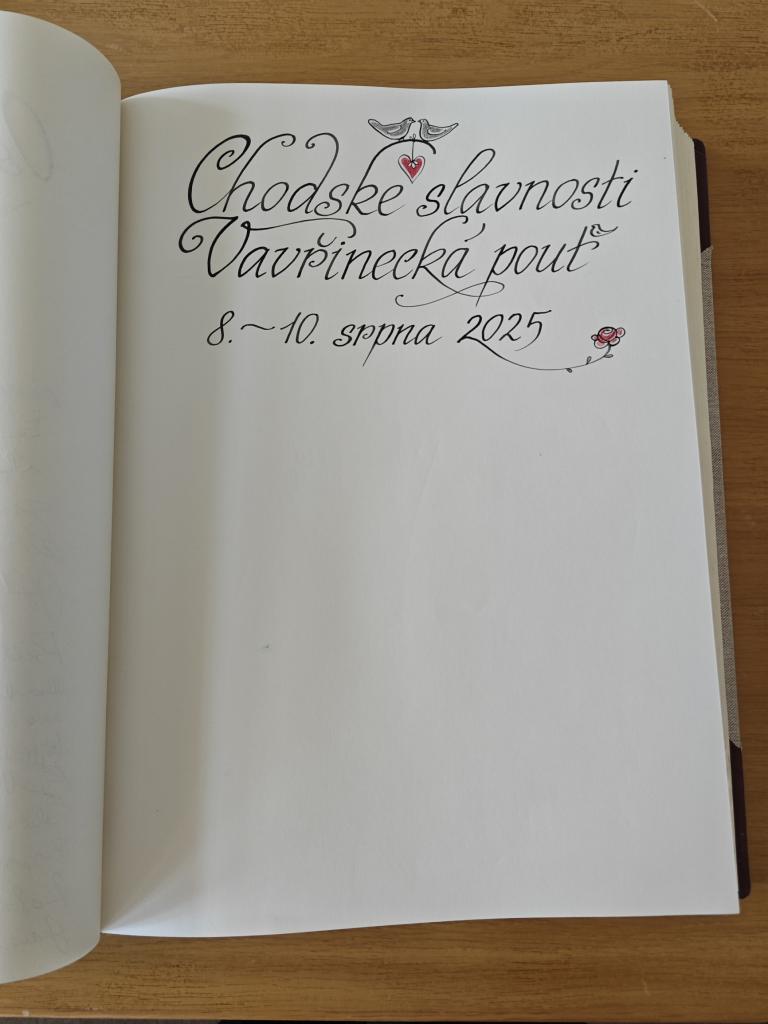 Chodské slavnosti
Vavřinecká pouť
8.~10. srpna 2025